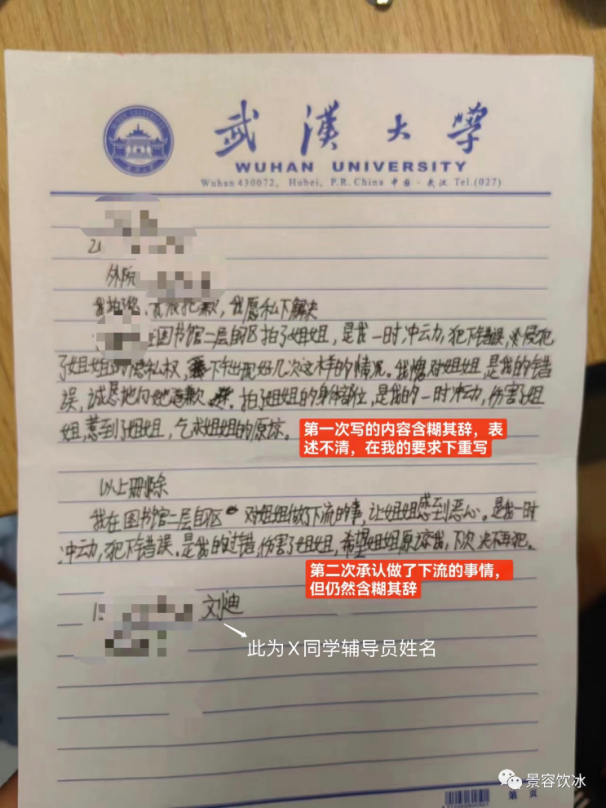 武漢大學
WUHAN UNIVERSITY
Wuhan 430072, Hubei, P.R.China 中国·武汉 Tel.(027)
外院
道歉，我愿私下解决
在图书馆二层自习区拍了姐姐，是我一时冲动，犯下错误，侵犯
了姐姐的隐私权，下午出现好几次这样的情况。我愧对姐姐，是我的错
误，诚恳地向她道歉。拍了姐姐的身体部位，是我的一时冲动，伤害了姐
姐，惹到了姐姐，乞求姐姐的原谅。
第一次写的内容含糊其辞，表
述不清，在我的要求下重写
以上删除
我在图书馆二层自习区对姐姐做了下流的事，让姐姐感到恶心。是我一时
冲动，犯下错误。是我的过错，伤害了姐姐，希望姐姐原谅我，下次决不再犯。
第二次承认做了下流的事情，
但仍然含糊其辞
文迪
此为X同学辅导员姓名
景容饮冰
第 页